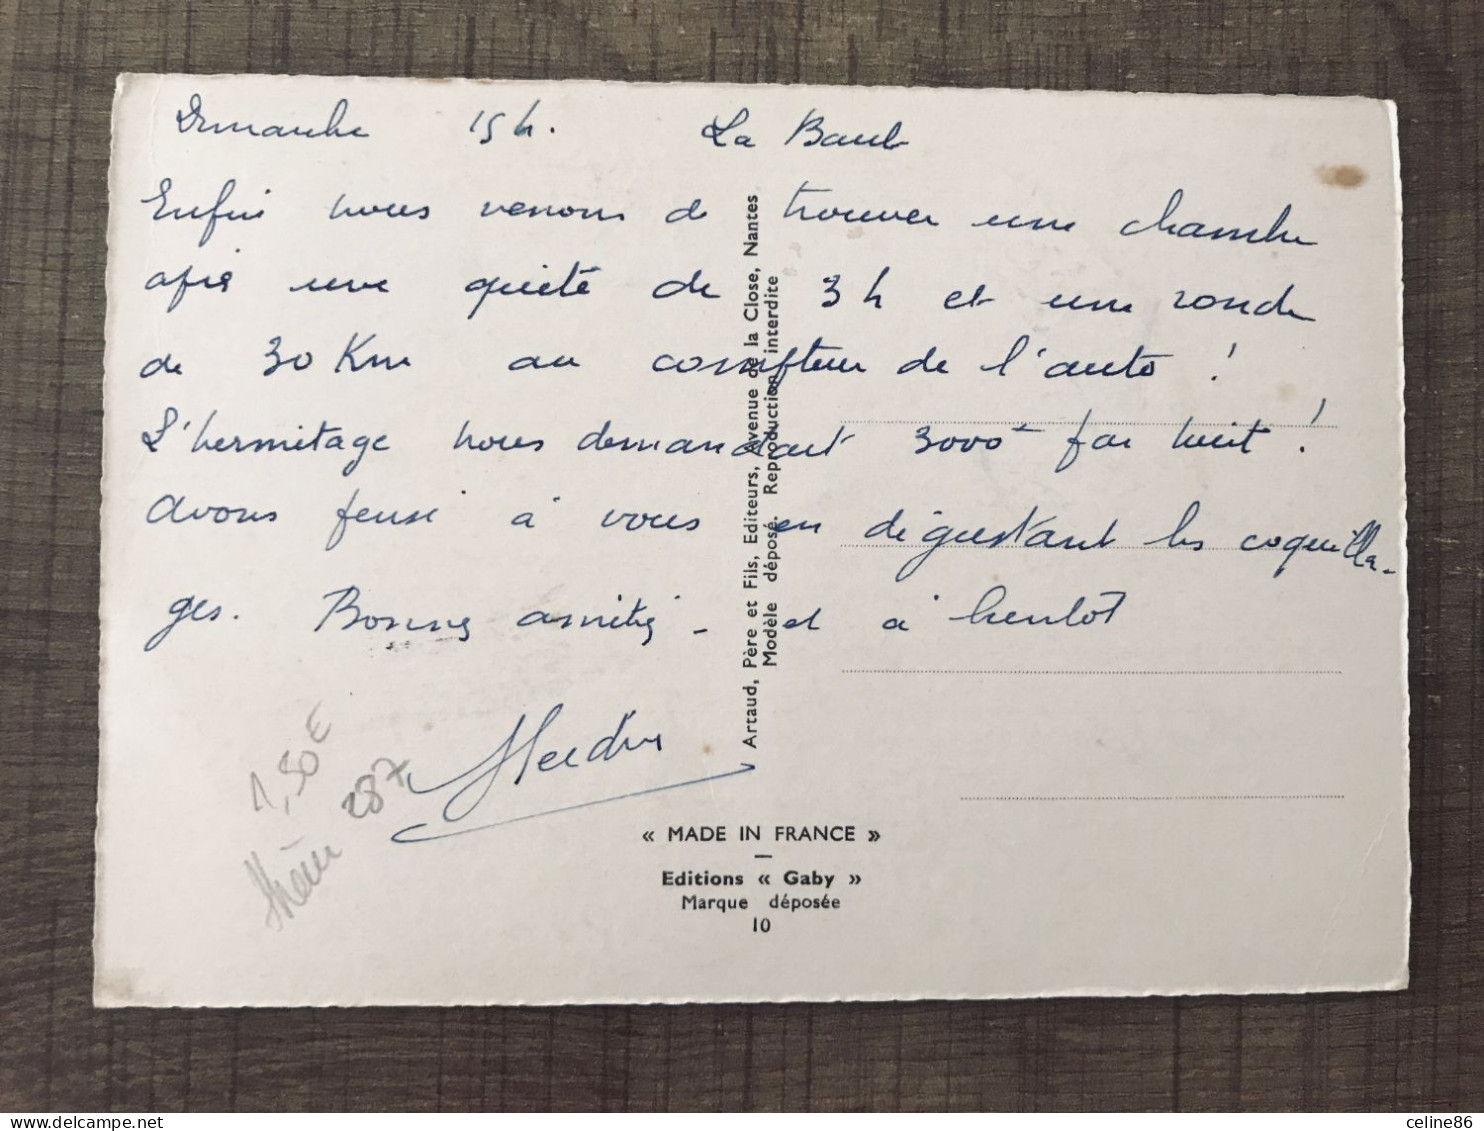 Dimanche 15h. La Baule
Enfin nous venons de trouver une chambre
après une quête de 3h et une ronde
de 30 Km au compteur de l'auto !
L'hermitage nous demandait 3000 par nuit !
Avons pensé à vous en dégustant les coquilla-
ges. Bonnes amitiés - et à bientôt
1,50€
287
Artaud, Père et Fils, Editeurs, Avenue de la Close, Nantes
Modèle déposé. Reproduction interdite
« MADE IN FRANCE »
Editions « Gaby »
Marque déposée
10
delcampe.net
celine86